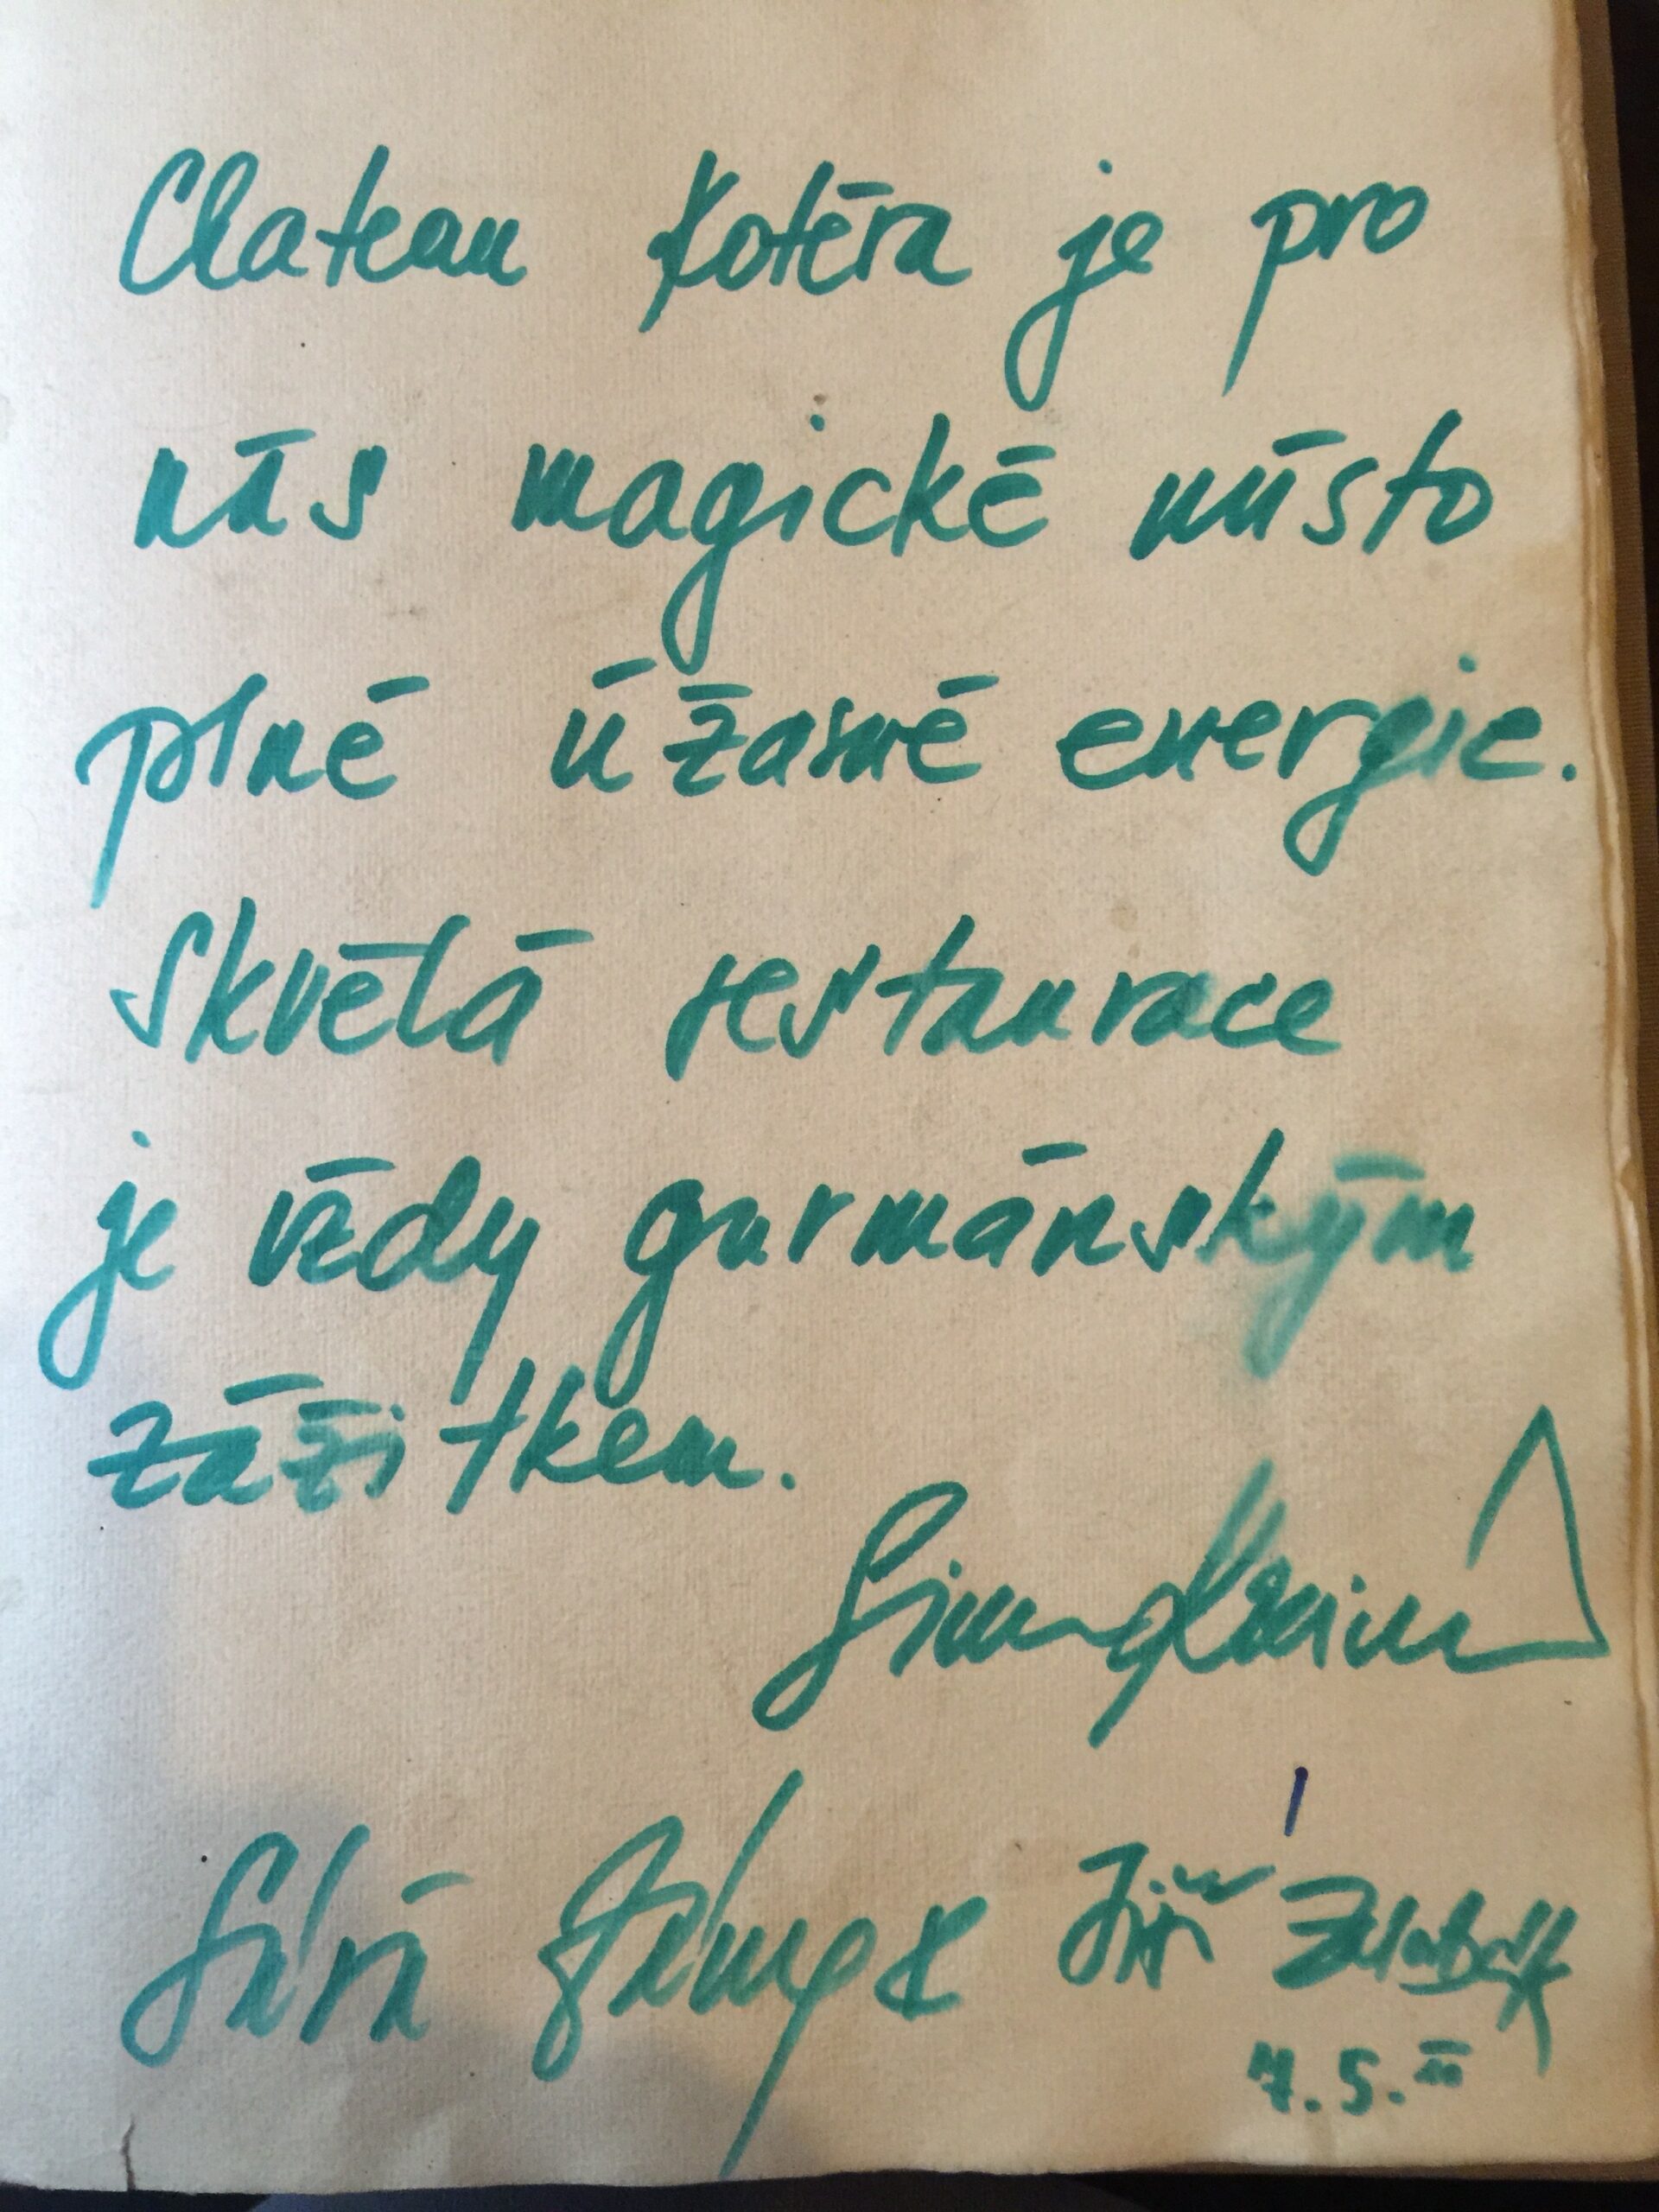 Chateau Kotěra je pro
nás magické místo
plné úžasné energie.
Skvělá restaurace
je vždy gurmánským
zážitkem.
Sára
Jiří
7.5.